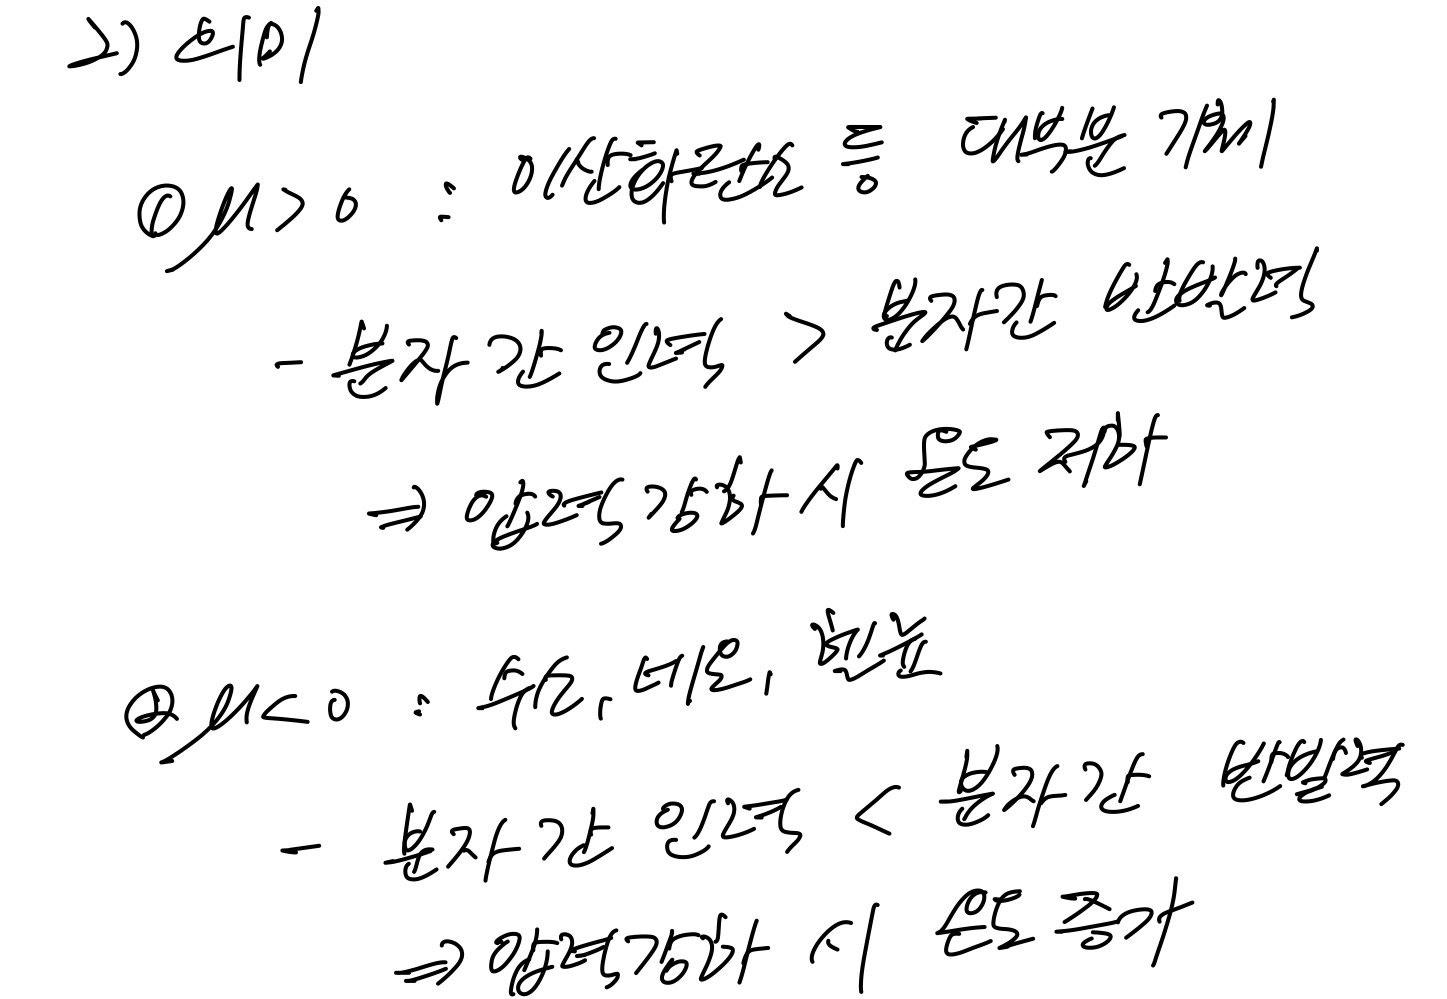 2) 의미
① μ>0 : 이산화탄소 등 대부분 기체
- 분자간 인력 > 분자간 반발력
⇒ 압력강하 시 온도 저하
② μ<0 : 수소, 네온, 헬륨
- 분자간 인력 < 분자간 반발력
⇒ 압력강하 시 온도 증가